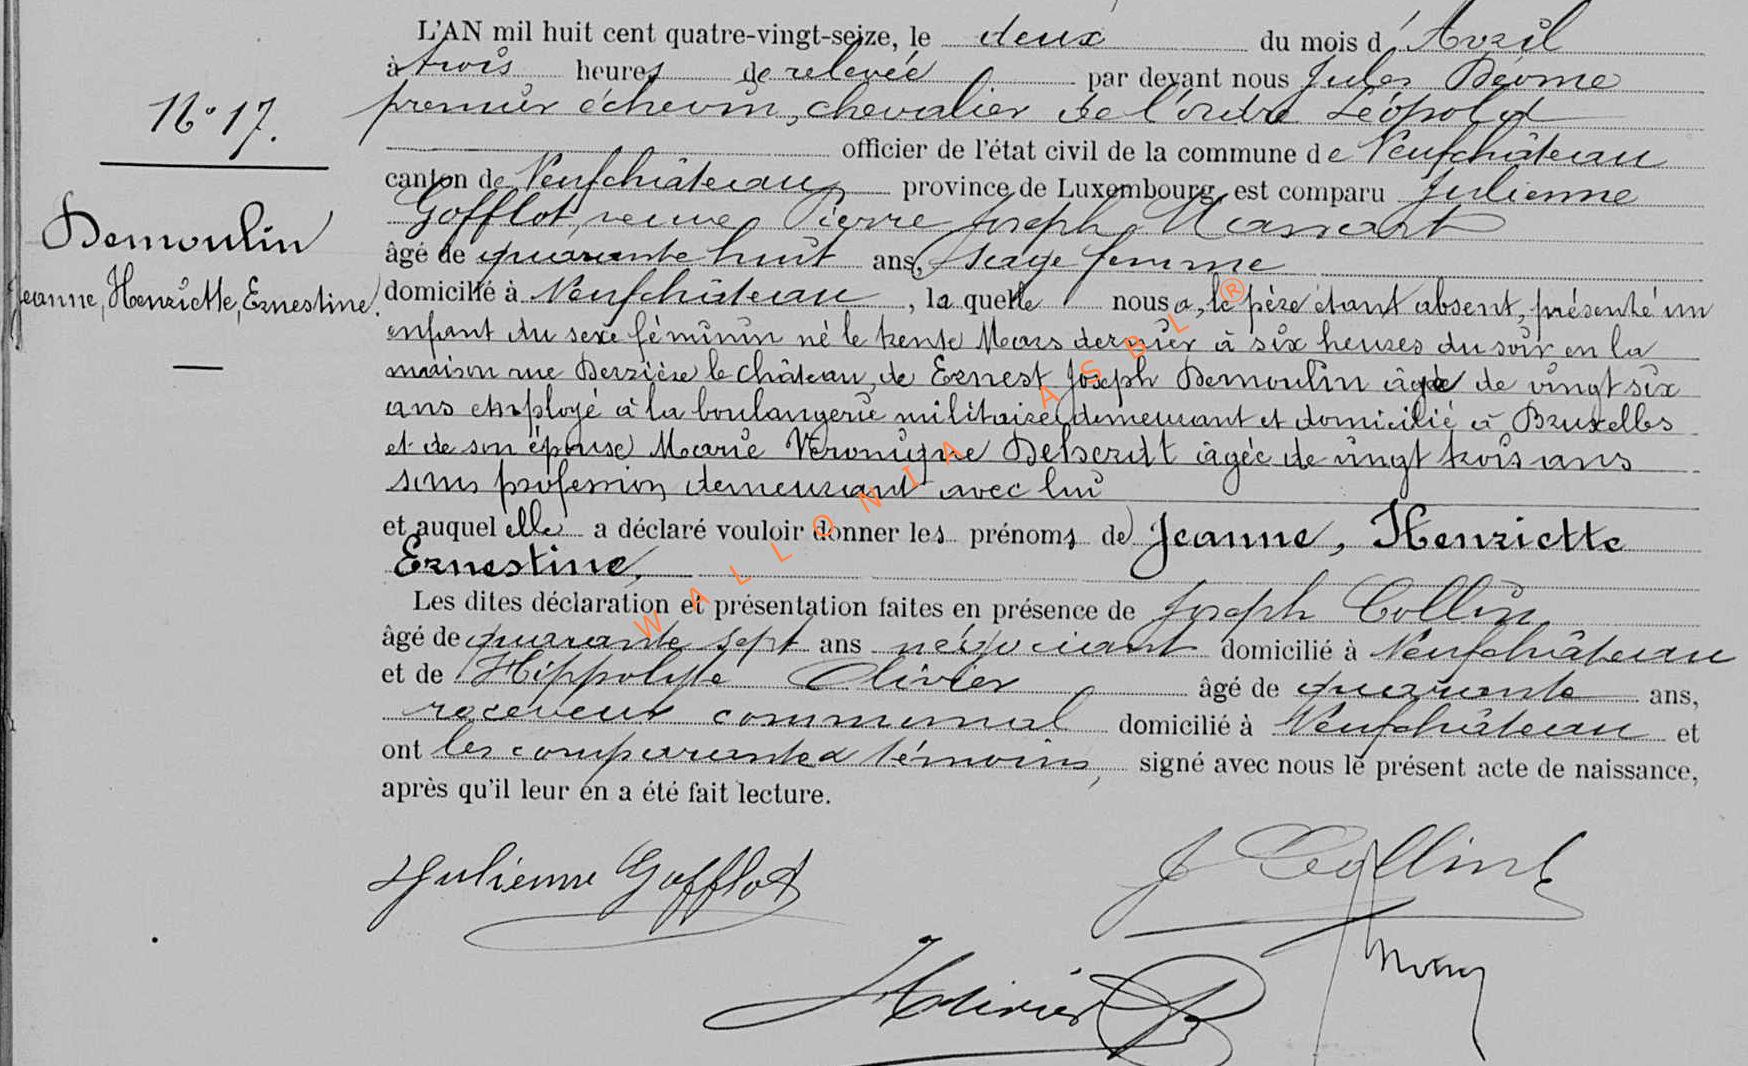 L'AN mil huit cent quatre-vingt-seize, le deux du mois d'Avril
à trois heures de relevée par devant nous Jules
premier échevin, chevalier de l'ordre Léopold
N° 17.
officier de l'état civil de la commune de Neufchâteau
canton de Neufchâteau, province de Luxembourg, est comparu Julienne
Gofflot, veuve Pierre Joseph
Demoulin
Jeanne, Henriette, Ernestine.
âgé de quarante huit ans, Sage femme
domicilié à Neufchâteau, la quelle nous a, le père étant absent, présenté un
enfant du sexe féminin né le trente Mars dernier à six heures du soir en la
maison rue Derrière le Château, de Ernest Joseph Demoulin âgé de vingt six
ans employé à la boulangerie militaire, demeurant et domicilié à Bruxelles
et de son épouse Marie Véronique âgée de vingt trois ans
sans profession, demeurant avec lui
et auquel elle a déclaré vouloir donner les prénoms de Jeanne, Henriette
Ernestine,
Les dites déclaration et présentation faites en présence de Joseph Collin
âgé de quarante sept ans négociant domicilié à Neufchâteau
et de Hippolyte Olivier âgé de quarante ans,
receveur communal domicilié à Neufchâteau et
ont les comparante & témoins, signé avec nous le présent acte de naissance,
après qu'il leur en a été fait lecture.
Julienne Gofflot
J Collin
HOlivier
WALLONIA ASBL ®